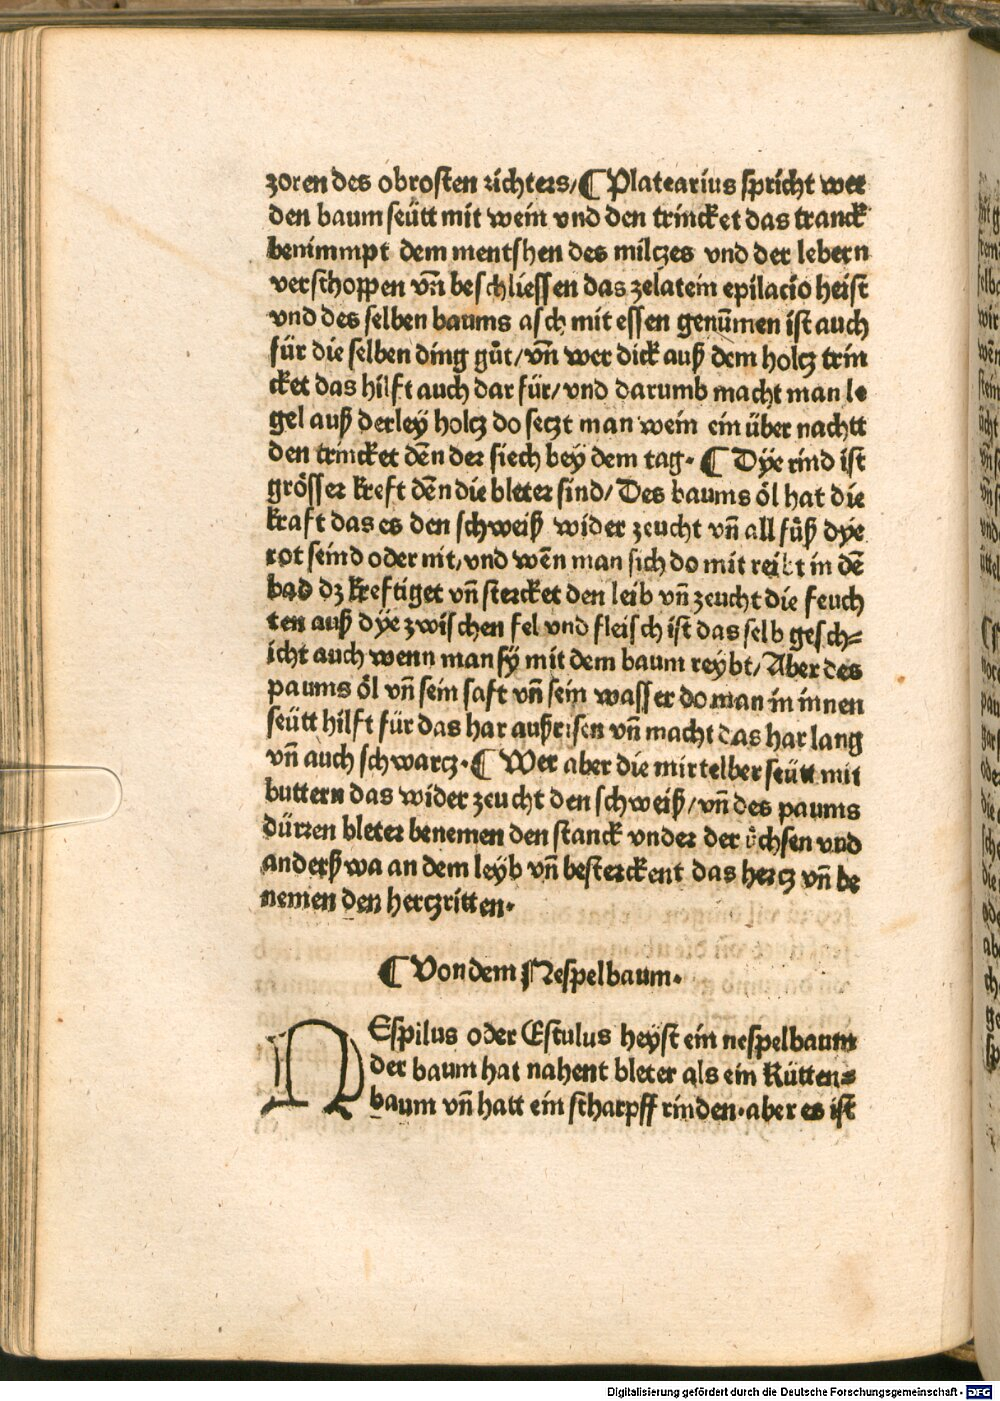 zoren des obrosten richters/ ¶ Platearius spricht wer
den baum seütt mit wein vnd den trincket das tranck
benimmpt dem mentshen des milczes vnd der lebern
verschoppen vn̄ beschliessen das zelatein epilacio heist
vnd des selben baums asch mit essen genūmen ist auch
für die selben ding gůt/ vn̄ wer dick auß dem holcz trin
cket das hilft auch dar für/ vnd darumb macht man le
gel auß derley holcz do seczt man wein ein über nachtt
den trincket dēn der siech bey dem tag. ¶ Dÿe rind ist
grösser kreft dēn die bleter sind/ Des baums öl hat die
kraft das es den schweiß wider zeucht vn̄ all fůß dÿe
rot seind oder nit/ vnd wēn man sich do mit reibt in dē
bad dz kreftiget vn̄ stercket den leib vn̄ zeucht die feuch
ten auß dÿe zwischen fel vnd fleisch ist das selb gesch⸗
icht auch wenn man sÿ mit dem baum reybt/ Aber des
paums öl vn̄ sein saft vn̄ sein wasser do man in innen
seütt hilft für das har außrisen vn̄ macht das har lang
vn̄ auch schwarcz. ¶ Wer aber die mirtelber seütt mit
buttern das wider zeucht den schweiß/ vn̄ des paums
dürren bleter benemen den stanck vnder der chsen vnd
anderßwa an dem leÿb vn̄ besterckent das hercz vn̄ be
nemen den herczritten.
¶ Von dem Nespelbaum.
NEspilus oder Estulus heyst ein nespelbaum
der baum hat nahent bleter als ein Kütten⸗
baum vn̄ hatt ein scharpff rinden. aber es ist
Digitalisierung gefördert durch die Deutsche Forschungsgemeinschaft - DFG